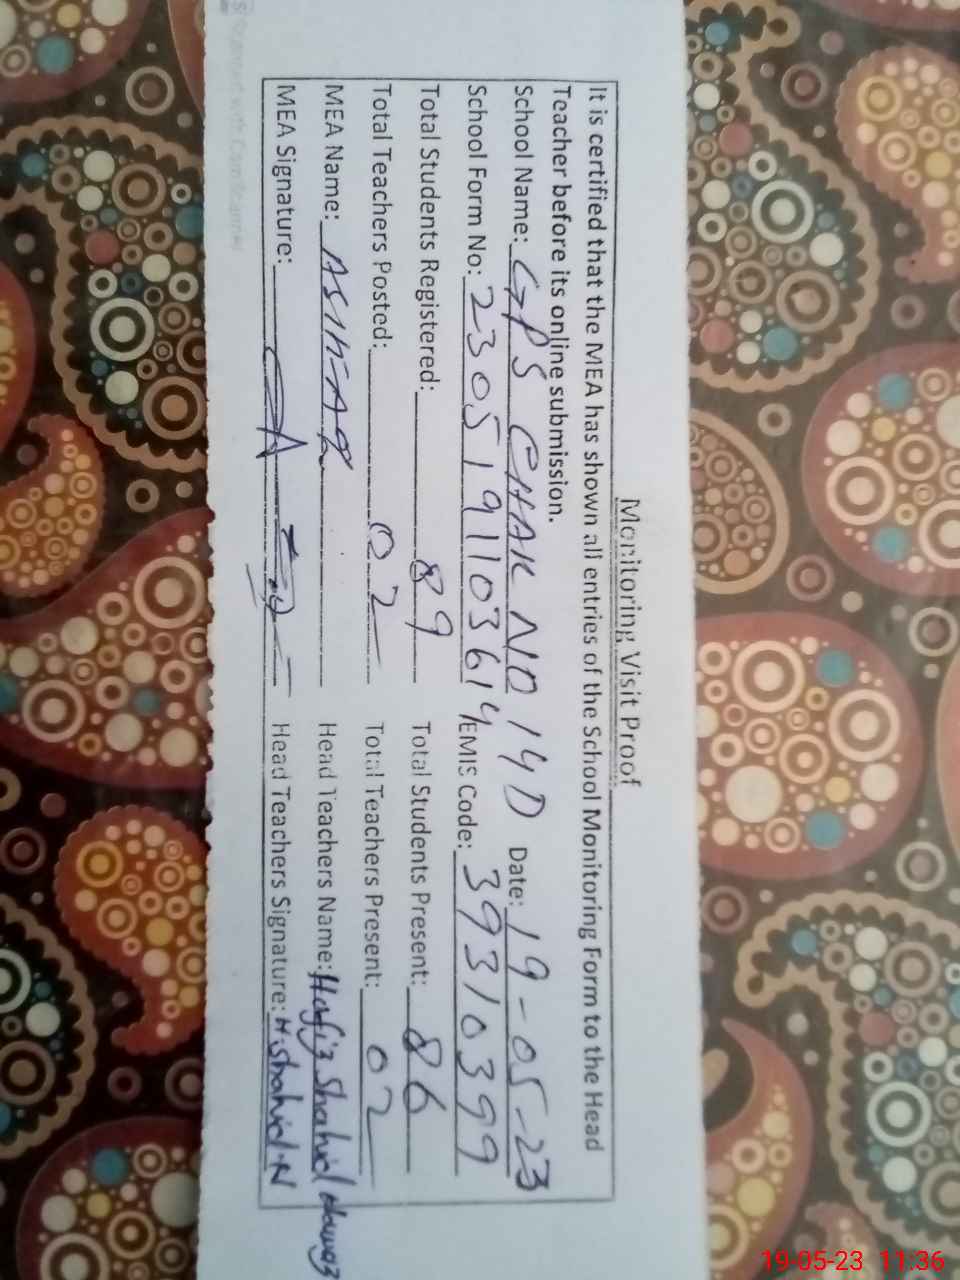 Monitoring Visit Proof
It is certified that the MEA has shown all entries of the School Monitoring Form to the Head
Teacher before its online submission.
School Name: GPS CHAK NO 14D Date: 19-05-23
School Form No: 2305191103614 EMIS Code: 39310399
Total Students Registered: 89 Total Students Present: 86
Total Teachers Posted: 02 Total Teachers Present: 02
MEA Name: ASHFAQ Head Teachers Name: Hafiz Shahid Nawaz
MEA Signature: Head Teachers Signature: H.Shahid.N
Scanned with CamScanner
19-05-23 11:36